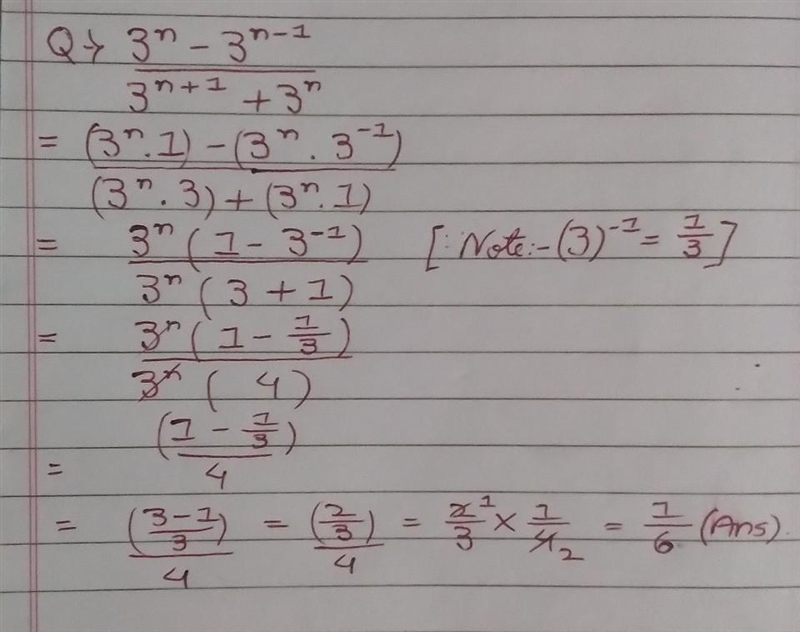 Q→ 3ⁿ - 3ⁿ⁻¹ / 3ⁿ⁺¹ + 3ⁿ
= (3ⁿ.1) - (3ⁿ.3⁻¹) / (3ⁿ.3) + (3ⁿ.1)
= 3ⁿ(1 - 3⁻¹) / 3ⁿ(3 + 1) [:Note:- (3)⁻¹ = 1/3]
= 3ⁿ(1 - 1/3) / 3ⁿ( 4)
= (1 - 1/3) / 4
= ((3-1)/3) / 4 = (2/3) / 4 = 2¹/3 × 1/4₂ = 1/6 (Ans).